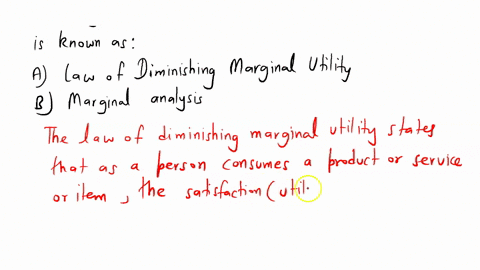 is known as:
A) Law of Diminishing Marginal Utility
B) Marginal analysis
The law of diminishing marginal utility states
that as a person consumes a product or service
or item, the satisfaction (util